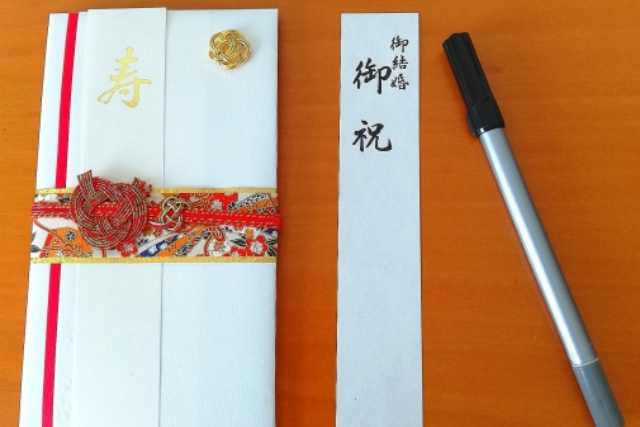 寿
御結婚
御祝